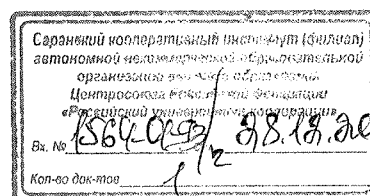 Саранский кооперативный институт (филиал)
автономной некоммерческой образовательной
организации высшего образования
Центросоюза Российской Федерации
«Российский университет кооперации»
Вх. № 28.12.20
Кол-во док-тов